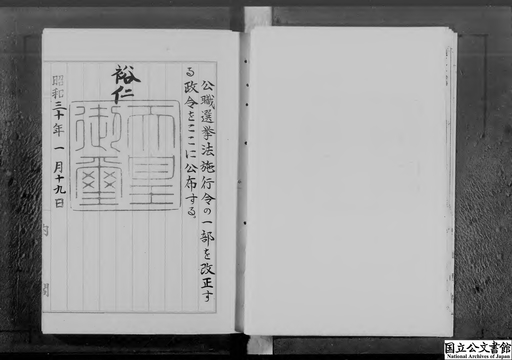 公職選挙法施行令の一部を改正す
る政令をここに公布する。
裕仁
天皇
御璽
昭和三十年一月十九日
内閣
国立公文書館
National Archives of Japan